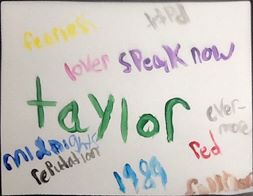 fearless
lover speak now
taylor
ever-
more
midnights
reputation
red
1989